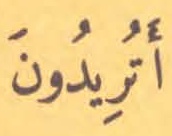 أَتُرِيدُونَ